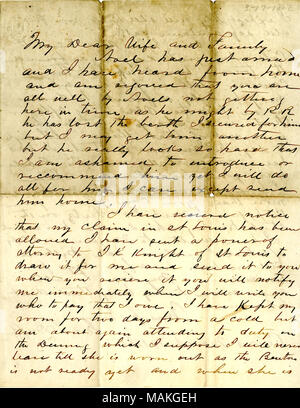 My Dear Wife and Family
Noel has just arrived
and I have heard from home
and am rejoiced that you are
all well by Noels not getting
here in time, as he might by R R
he has lost the berth I secured for him
but I may get him another
but he really looks so hard that
I am ashamed to introduce or
reccommend him yet I will do
all for him I can except send
him home.
I have received notice
that my claim in St Louis has been
allowed I have sent a power of
attorny to J K Knight of St Louis to
draw it for me and send it to you
when you recieve it you will notify
me immediately when I will write you
who to pay that I owe. I have kept my
room for two days from a cold but
am about again attending to duty on
the which I suppose I will never
leave till she is worn out as the Benton
is not ready yet and when she is
alamy
Image ID: MAKGEH
www.alamy.com